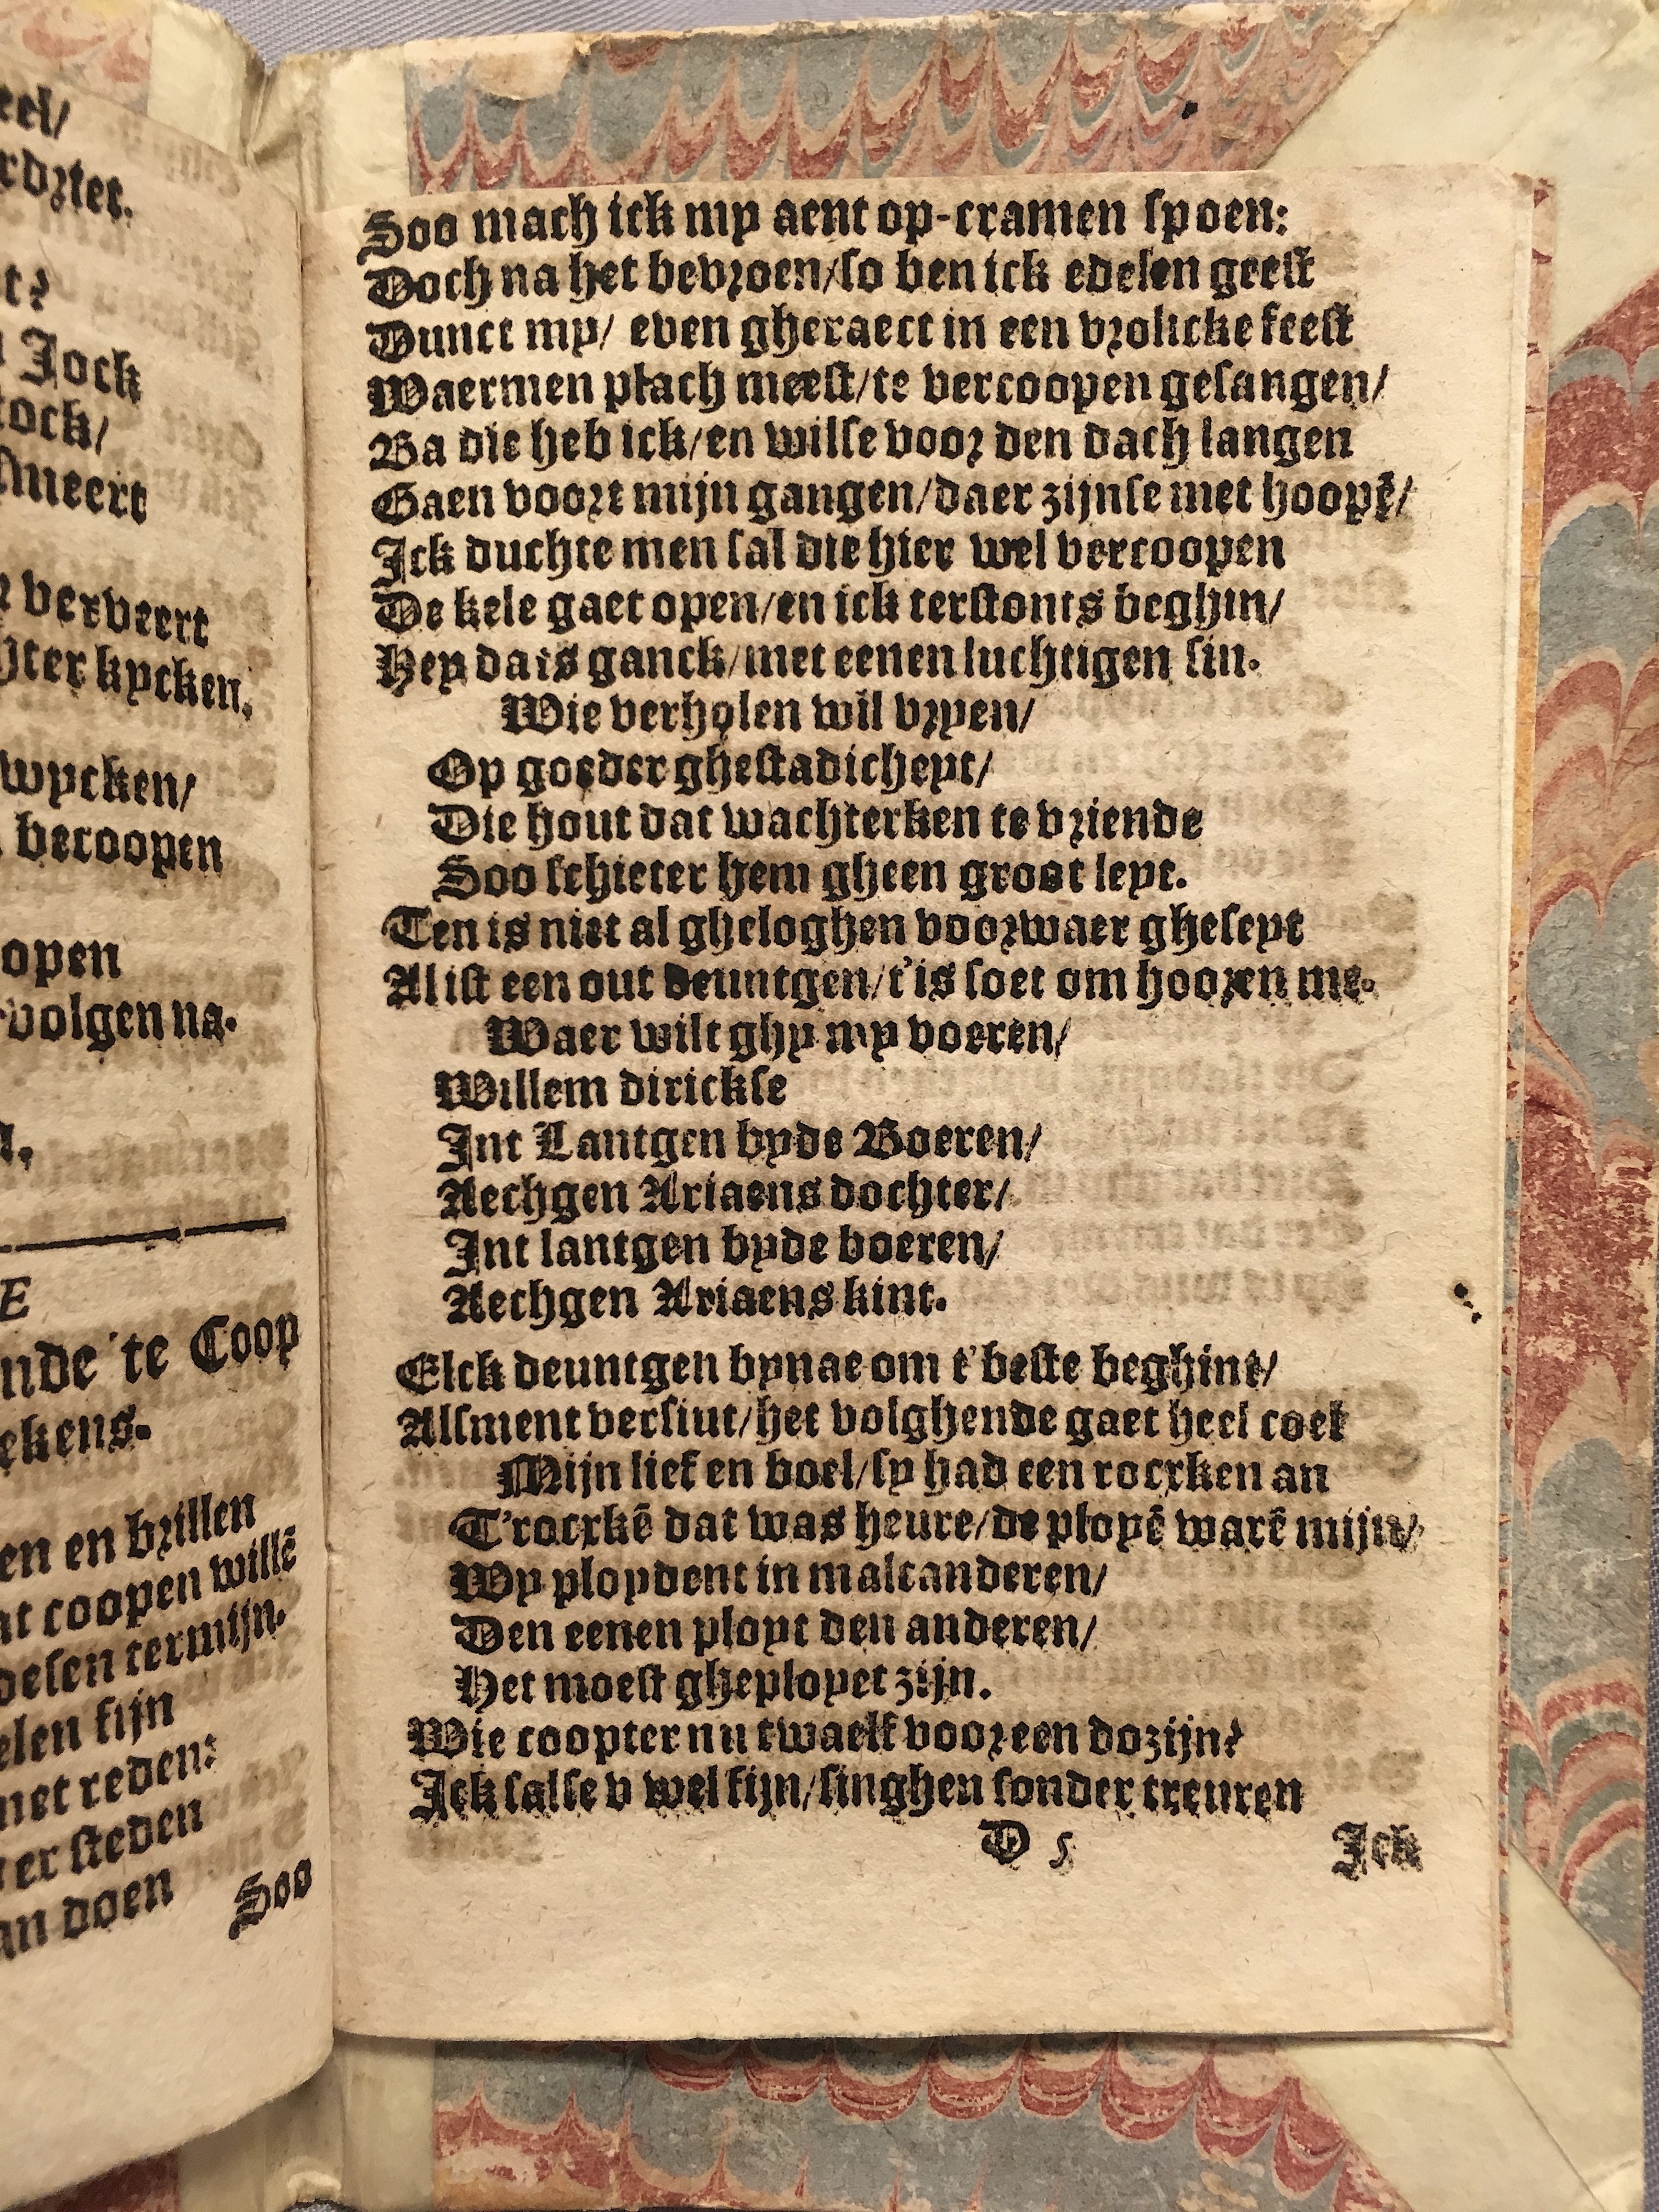 eel/
t?
Jock
tock/
verveert
kycken.
wycken/
becoopen
open
volgen na.
E
te Coop
ekens.
en en brillen
coopen willē
desen termijn.
elen fijn
met reden:
steden
doen
Soo
Soo mach ick my aent op-cramen spoen:
Doch na het bevroen/so ben ick edelen geest
Dunct my/ even gheraect in een vrolicke feest
Waermen plach meest/te vercoopen gesangen/
Ba die heb ick/en wilse voor den dach langen
Gaen voort mijn gangen/daer zijnse met hoopē/
Ick duchte men sal die hier wel vercoopen
De kele gaet open/en ick terstonts beghin/
Hey da is ganck/met eenen luchtigen sin.
Wie verholen wil vryen/
Op goeder ghestadicheyt/
Die hout dat wachterken te vriende
Soo schieter hem gheen groot leyt.
Ten is niet al gheloghen voorwaer gheseyt
Al ist een out deuntgen/t'is soet om hooren me.
Waer wilt ghy my voeren/
Willem dirickse
Int Lantgen byde Boeren/
Aechgen Ariaens dochter/
Int lantgen byde boeren/
Aechgen Ariaens kint.
Elck deuntgen bynae om t'beste beghint/
Alsment versint/het volghende gaet heel coel
Mijn lief en boel/sy had een rocxken an
T'rocxkē dat was heure/de ployē warē mijn/
Wy ploydent in malcanderen/
Den eenen ployt den anderen/
Het moest gheployet zijn.
Wie coopter nu twaelf voor een dozijn?
Ick salse v wel fijn/singhen sonder treuren
D 5
Ick